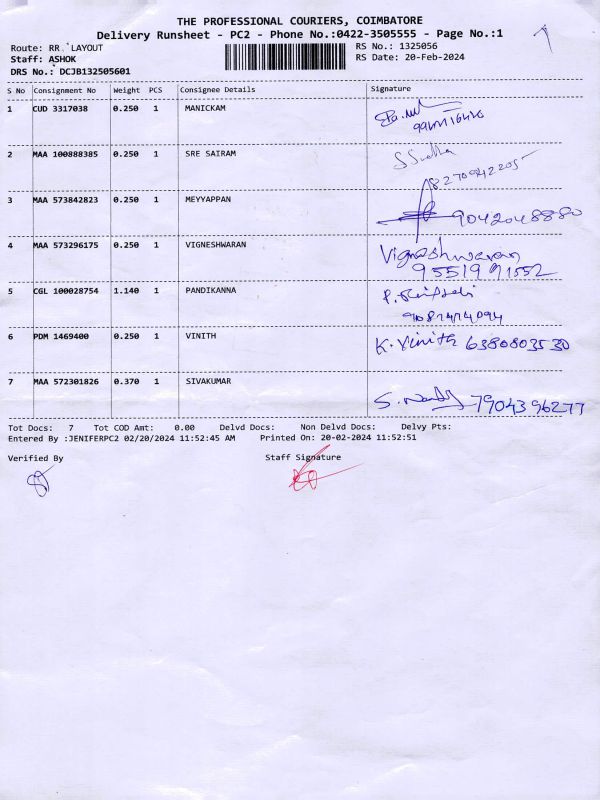 THE PROFESSIONAL COURIERS, COIMBATORE
Delivery Runsheet - PC2 - Phone No.:0422-3505555 - Page No.:1
Route: RR. LAYOUT RS No.: 1325056
Staff: ASHOK RS Date: 20-Feb-2024
DRS No.: DCJB132505601
S No Consignment No Weight PCS Consignee Details Signature
1 CUD 3317038 0.250 1 MANICKAM
2 MAA 100888385 0.250 1 SRE SAIRAM
8270942205
3 MAA 573842823 0.250 1 MEYYAPPAN
9042048880
4 MAA 573296175 0.250 1 VIGNESHWARAN Vigneshwaran
9551991552
5 CGL 100028754 1.140 1 PANDIKANNA
6 PDM 1469400 0.250 1 VINITH K. Vinith 6380803530
7 MAA 572301826 0.370 1 SIVAKUMAR
7904396277
Tot Docs: 7 Tot COD Amt: 0.00 Delvd Docs: Non Delvd Docs: Delvy Pts:
Entered By :JENIFERPC2 02/20/2024 11:52:45 AM Printed On: 20-02-2024 11:52:51
Verified By Staff Signature